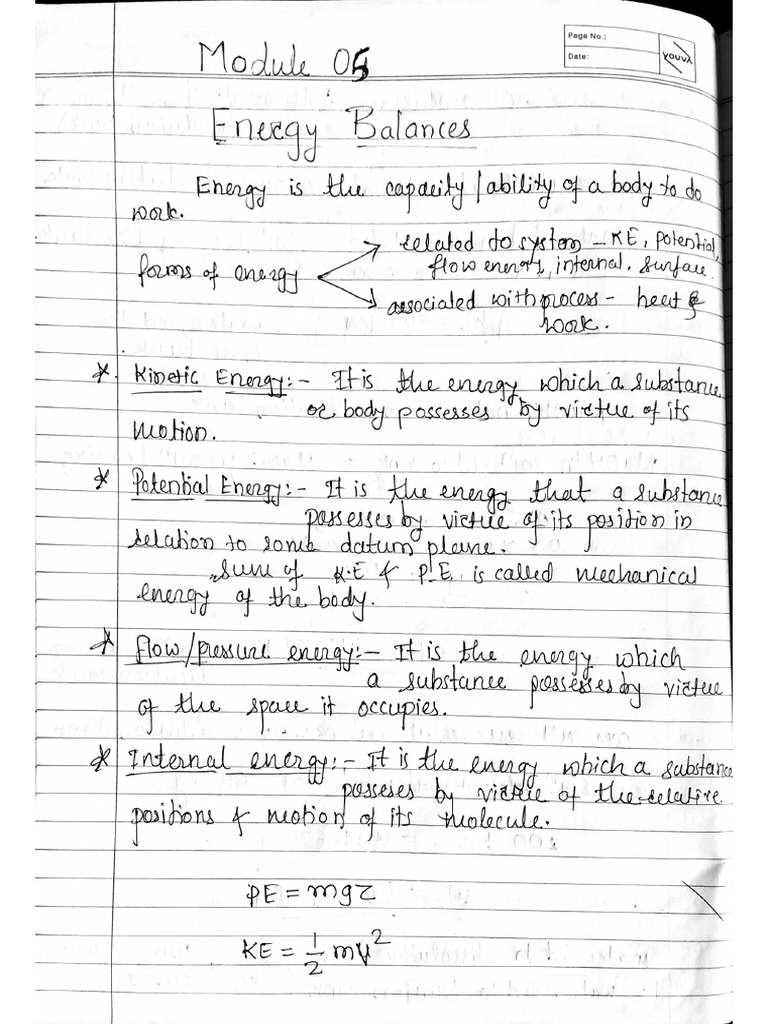 Page No.:
Date:
youva
Module 05
Energy Balances
Energy is the capacity / ability of a body to do
work.
related to system - KE, potential,
flow energy, internal, surface.
forms of energy
associated with process - heat &
work.
* Kinetic Energy:- It is the energy which a substance
or body possesses by virtue of its
motion.
* Potential Energy:- It is the energy that a substance
possesses by virtue of its position in
relation to some datum plane.
Sum of K.E & P.E. is called mechanical
energy of the body.
* flow/pressure energy:- It is the energy which
a substance possesses by virtue
of the space it occupies.
* Internal energy:- It is the energy which a substance
posseses by virtue of the relative
positions & motion of its molecule.
PE = mgz
KE = 1/2 mv²